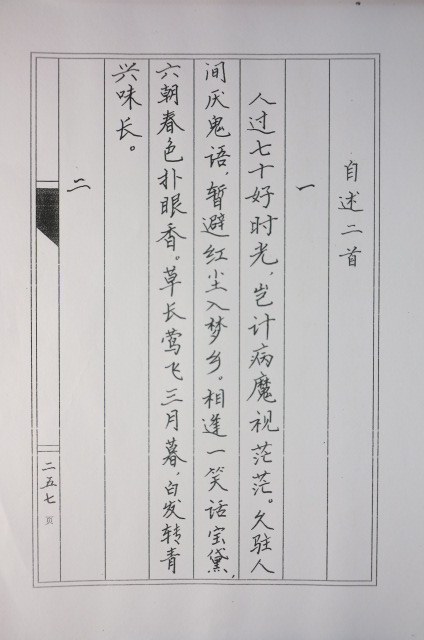 自述二首
一
人过七十好时光，岂计病魔视茫茫。久驻人
间厌鬼语，暂避红尘入梦乡。相逢一笑话宝黛，
六朝春色扑眼香。草长莺飞三月暮，白发转青
兴味长。
二
二五七页